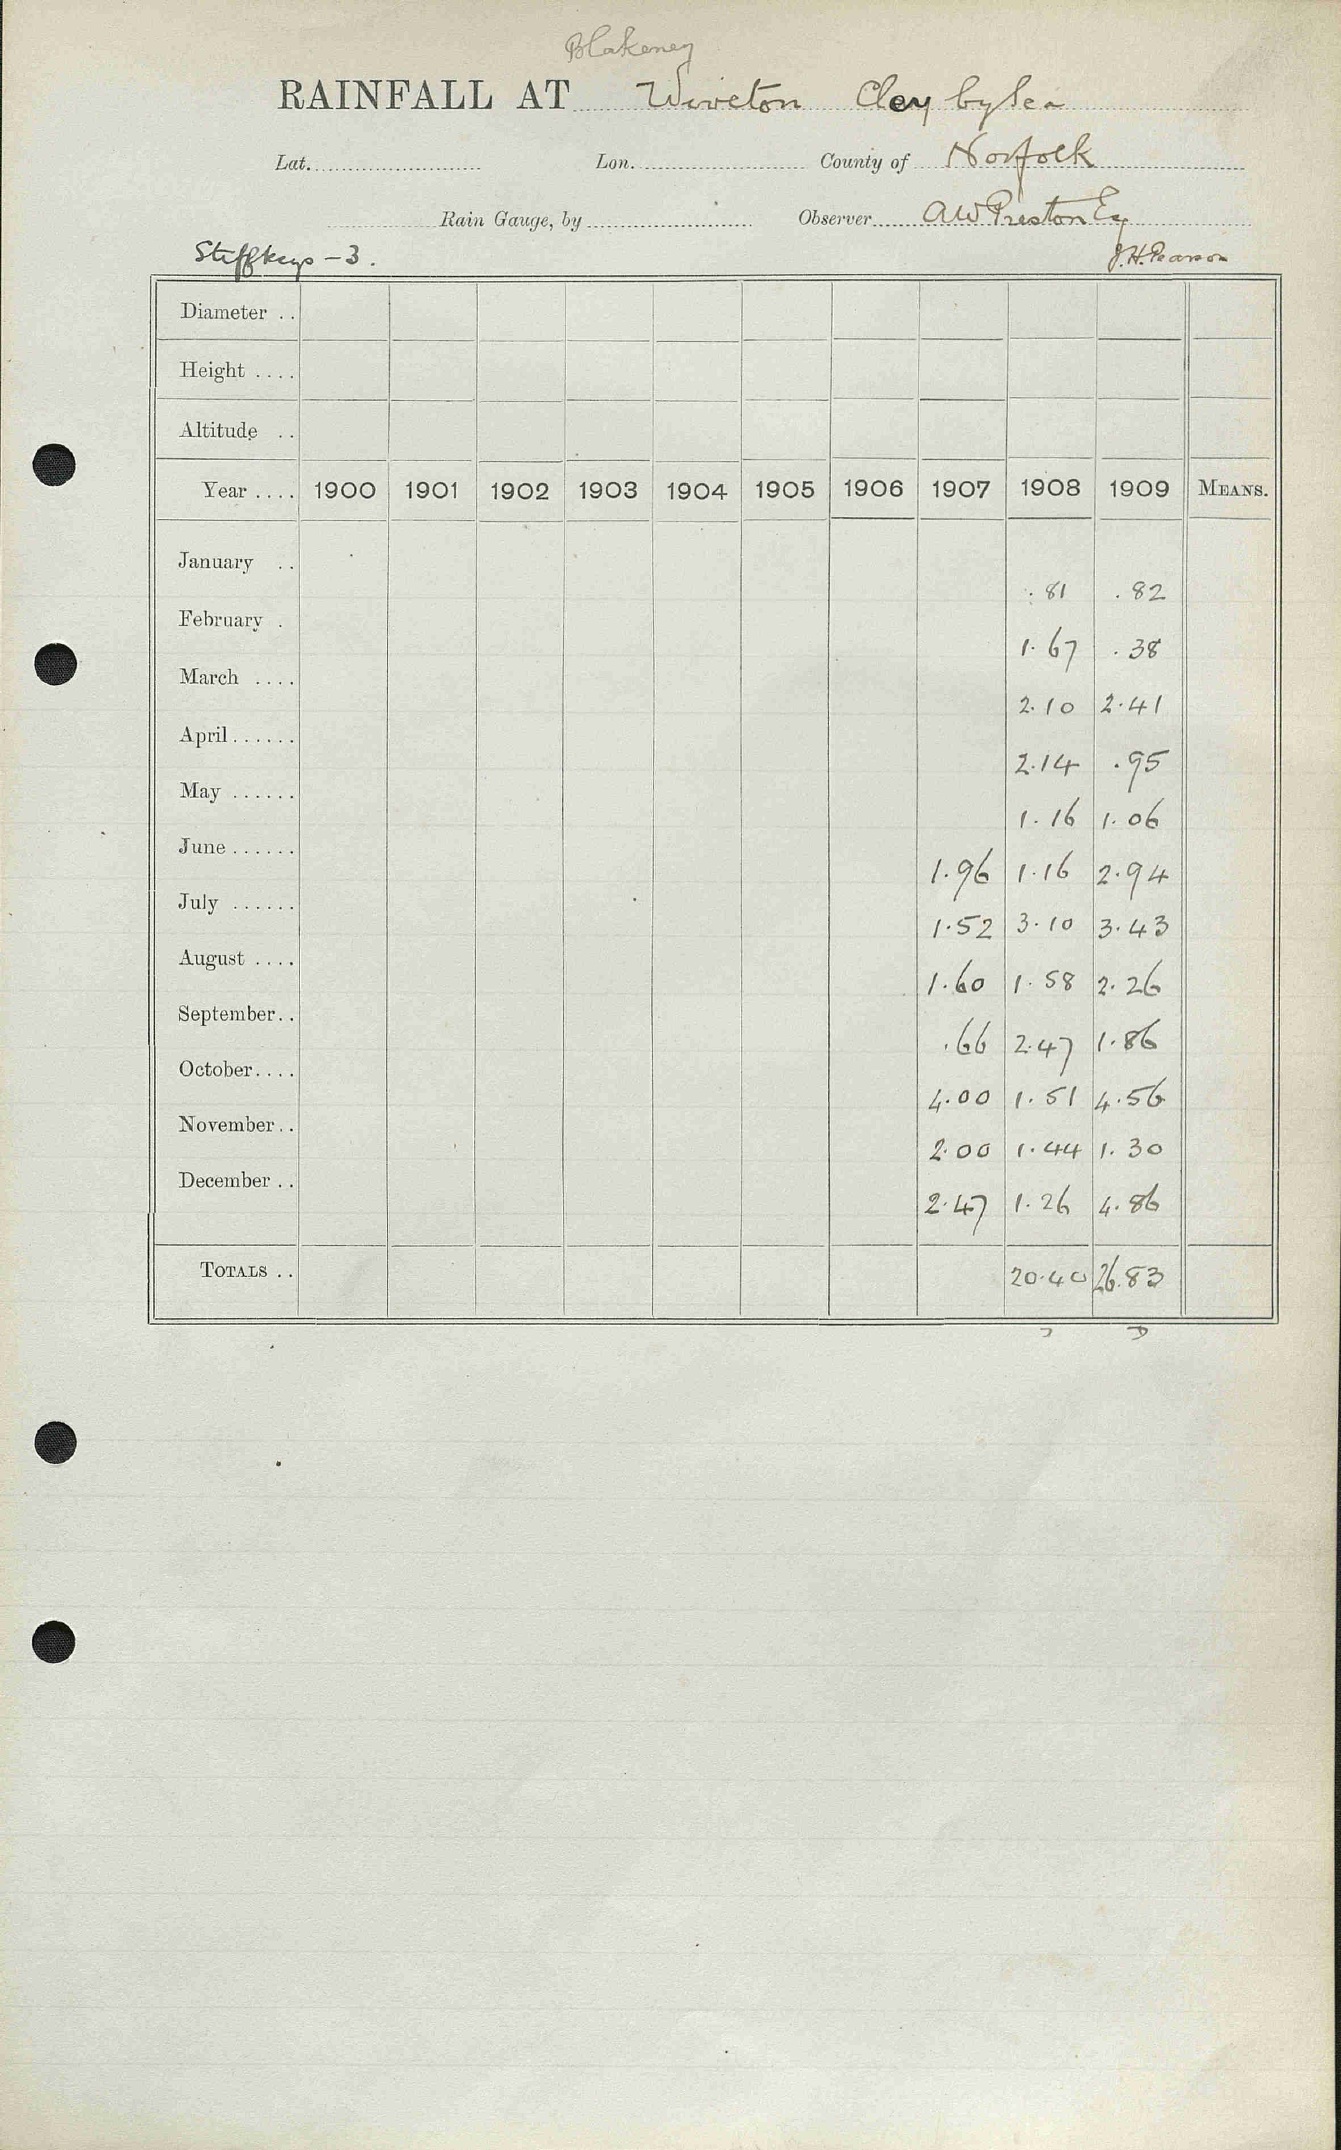 Blakeney
RAINFALL AT Wiveton Cley by Sea
Lat. Lon. County of Norfolk
Rain Gauge, by Observer A W Preston Esq
Stiffkeys - 3. J.H. Pearson
Diameter ..
Height ....
Altitude ..
Year .... 1900 1901 1902 1903 1904 1905 1906 1907 1908 1909 MEANS.
January .. .81 .82
February . 1.67 .38
March .... 2.10 2.41
April ...... 2.14 .95
May ...... 1.16 1.06
June ...... 1.96 1.16 2.94
July ...... 1.52 3.10 3.43
August .... 1.60 1.58 2.26
September.. .66 2.47 1.86
October.... 4.00 1.51 4.56
November.. 2.00 1.44 1.30
December .. 2.47 1.26 4.86
TOTALS .. 20.40 26.83